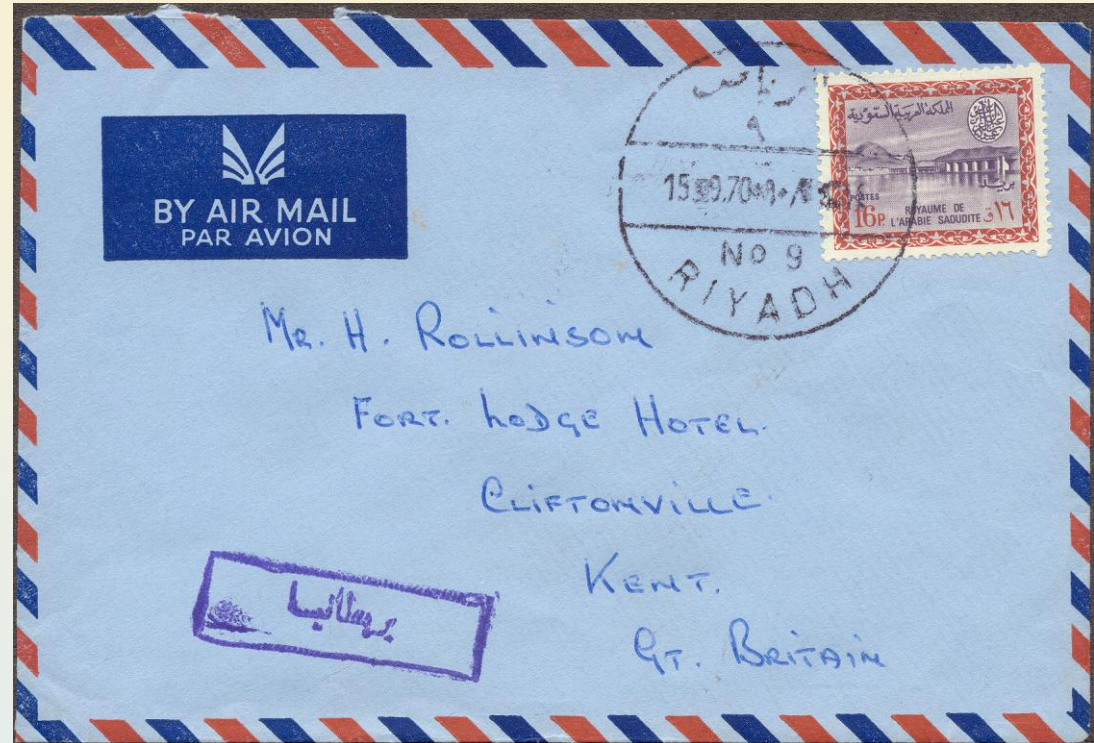 BY AIR MAIL
PAR AVION
الرياض
٩
15 9.70
No 9
RIYADH
المملكة العربية السعودية
بريد
POSTES
16P.
ROYAUME DE
L'ARABIE SAOUDITE
١٦ق
Mr. H. ROLLINSON
FORT. LODGE HOTEL.
CLIFTONVILLE.
KENT.
GT. BRITAIN
بريطانيا